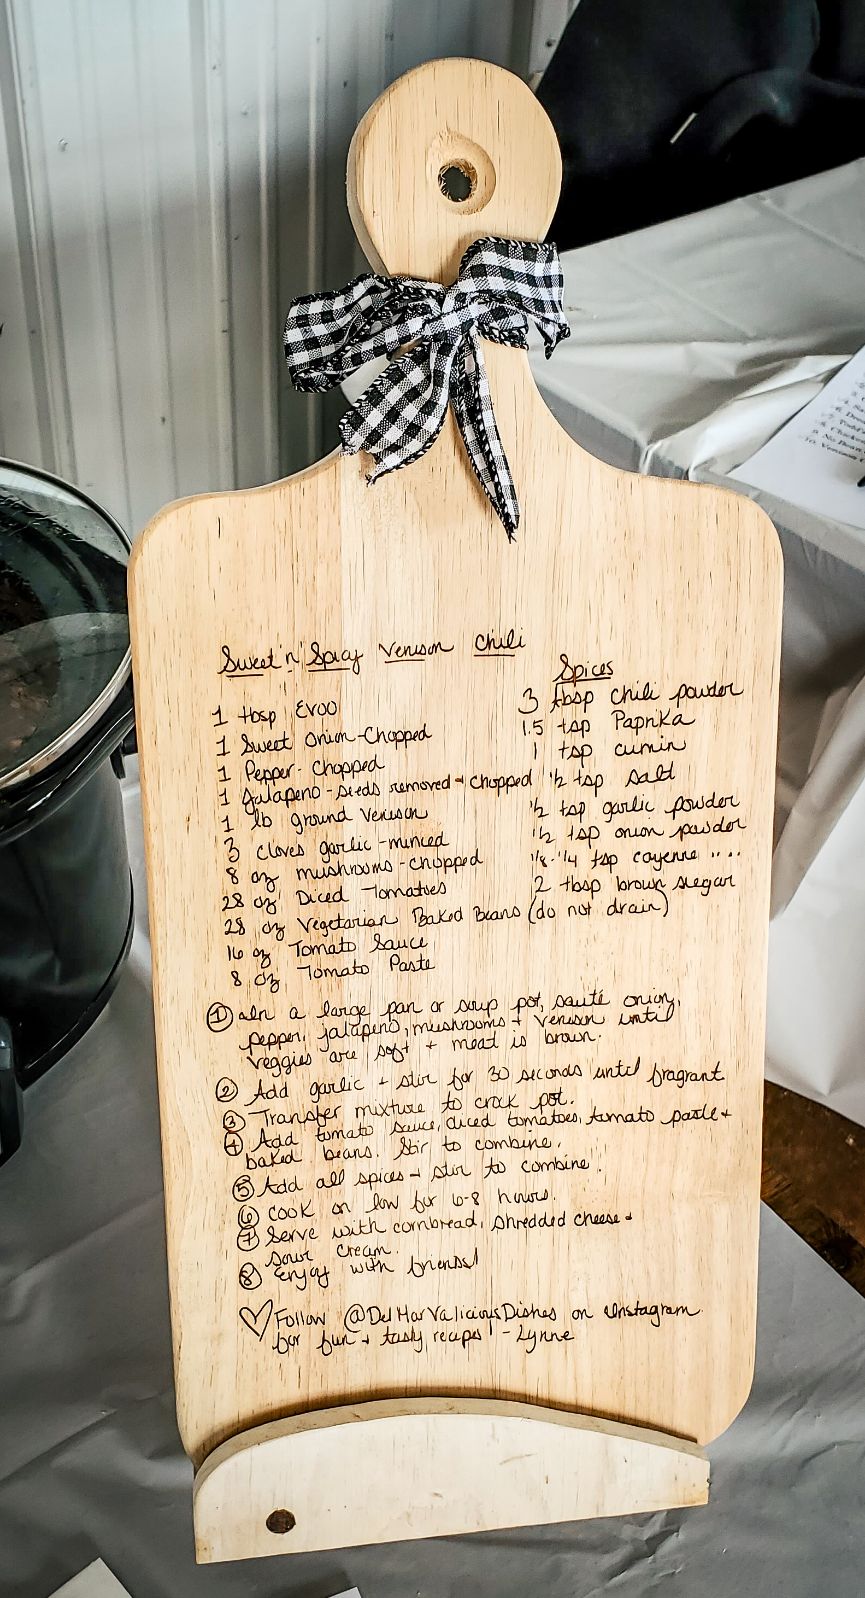 Sweet 'n' Spicy Venison Chili
1 tbsp EVOO
1 Sweet Onion-Chopped
1 Pepper-Chopped
1 Jalapeno-seeds removed + chopped
1 lb ground venison
3 cloves garlic-minced
8 oz mushrooms-chopped
28 oz Diced Tomatoes
28 oz Vegetarian Baked Beans (do not drain)
16 oz Tomato Sauce
8 oz Tomato Paste
Spices
3 tbsp chili powder
1.5 tsp Paprika
1 tsp cumin
1/2 tsp salt
1/2 tsp garlic powder
1/2 tsp onion powder
1/8-1/4 tsp cayenne
2 tbsp brown sugar
① In a large pan or soup pot, sauté onion,
pepper, jalapeno, mushrooms + venison until
veggies are soft + meat is brown.
② Add garlic + stir for 30 seconds until fragrant
③ Transfer mixture to crock pot.
④ Add tomato sauce, diced tomatoes, tomato paste +
baked beans. Stir to combine.
⑤ Add all spices + stir to combine.
⑥ Cook on low for 6-8 hours.
⑦ Serve with cornbread, shredded cheese +
sour cream.
⑧ Enjoy with friends!
♡ Follow @DelMarValiciousDishes on Instagram
for fun + tasty recipes! - Lynne